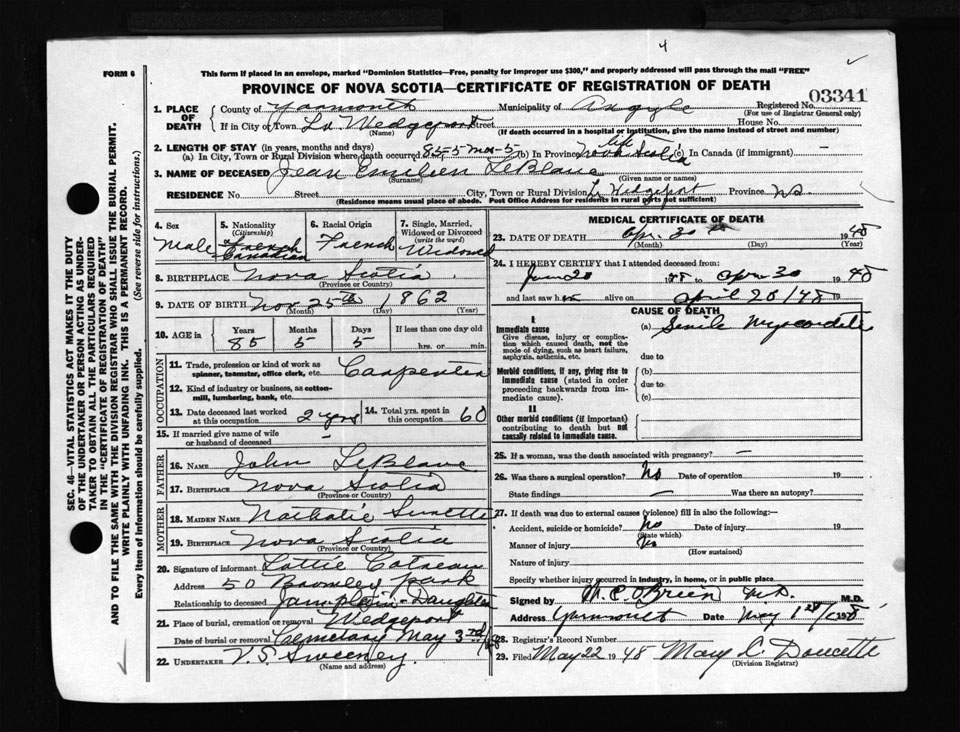 4
FORM 6
This form if placed in an envelope, marked "Dominion Statistics—Free, penalty for improper use $300," and properly addressed will pass through the mail "FREE"
PROVINCE OF NOVA SCOTIA—CERTIFICATE OF REGISTRATION OF DEATH
03341
1. PLACE OF DEATH County of Yarmouth Municipality of Argyle Registered No.
(For use of Registrar General only)
If in City or Town Lr Wedgeport Street House No.
(Name) (If death occurred in a hospital or institution, give the name instead of street and number)
2. LENGTH OF STAY (in years, months and days)
(a) In City, Town or Rural Division where death occurred 85-5 mos-5 (b) In Province life Nova Scotia (c) In Canada (if immigrant) —
3. NAME OF DECEASED Jean Emilien LeBlanc
(Surname) (Given name or names)
RESIDENCE No. Street City, Town or Rural Division Lr Wedgeport Province N.S.
(Residence means usual place of abode. Post Office Address for residents in rural parts not sufficient)
4. Sex Male
5. Nationality (Citizenship) French Canadian
6. Racial Origin French
7. Single, Married, Widowed or Divorced (write the word) Widowed
8. BIRTHPLACE Nova Scotia
(Province or Country)
9. DATE OF BIRTH Nov 25th 1862
(Month) (Day) (Year)
10. AGE in Years Months Days If less than one day old
85 5 5 hrs. or min.
OCCUPATION
11. Trade, profession or kind of work as spinner, teamster, office clerk, etc. Carpenter
12. Kind of industry or business, as cotton-mill, lumbering, bank, etc.
13. Date deceased last worked at this occupation 2 yrs
14. Total yrs. spent in this occupation 60
15. If married give name of wife or husband of deceased —
FATHER
16. NAME John LeBlanc
17. BIRTHPLACE Nova Scotia
(Province or Country)
MOTHER
18. MAIDEN NAME Nathalie Surette
19. BIRTHPLACE Nova Scotia
(Province or Country)
20. Signature of informant Lottie Cotreau
Address 50 Bromley Park
Relationship to deceased Jam plain - Daughter
21. Place of burial, cremation or removal Wedgeport
Date of burial or removal Cemetary May 3rd /48
22. UNDERTAKER V. S. Sweeney
(Name and address)
MEDICAL CERTIFICATE OF DEATH
23. DATE OF DEATH Apr. 30th 1948
(Month) (Day) (Year)
24. I HEREBY CERTIFY that I attended deceased from:
June 20 to Apr 30 1948
and last saw him alive on April 20/48 19
CAUSE OF DEATH
I
Immediate cause
Give disease, injury or complication which caused death, not the mode of dying, such as heart failure, asphyxia, asthenia, etc.
(a) Senile Myocarditis
due to
Morbid conditions, if any, giving rise to immediate cause (stated in order proceeding backwards from immediate cause).
(b)
due to
(c)
II
Other morbid conditions (if important) contributing to death but not causally related to immediate cause.
25. If a woman, was the death associated with pregnancy? —
26. Was there a surgical operation? No Date of operation 19
State findings — Was there an autopsy?
27. If death was due to external causes (violence) fill in also the following:—
Accident, suicide or homicide? No Date of injury 19
(State which)
Manner of injury No
(How sustained)
Nature of injury
Specify whether injury occurred in industry, in home, or in public place
Signed by M.C. O'Brien M.D. M.D.
Address Yarmouth Date May 1st/1948
28. Registrar's Record Number
29. Filed May 22 1948 Mary L. Doucette
(Division Registrar)
SEC. 46—VITAL STATISTICS ACT MAKES IT THE DUTY
OF THE UNDERTAKER OR PERSON ACTING AS UNDER-
TAKER TO OBTAIN ALL THE PARTICULARS REQUIRED
IN THE "CERTIFICATE OF REGISTRATION OF DEATH"
AND TO FILE THE SAME WITH THE DIVISION REGISTRAR WHO SHALL ISSUE THE BURIAL PERMIT.
WRITE PLAINLY WITH UNFADING INK. THIS IS A PERMANENT RECORD.
Every item of information should be carefully supplied. (See reverse side for instructions.)